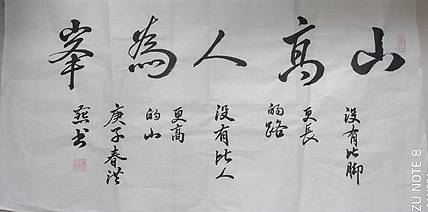 山高人為峯
没有比脚
更长
的路
没有比人
更高
的山
庚子春洪
燕书
ZU NOTE 8